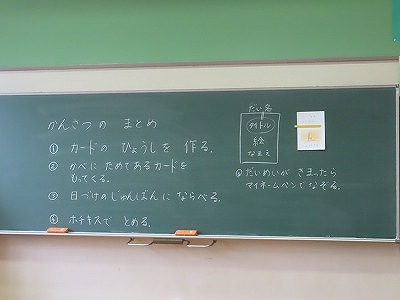 かんさつの まとめ
① カードの ひょうしを 作る.
② かべに ためてあるカードを
もってくる.
③ 日づけのじゅんばんに ならべる.
④ ホチキスで とめる.
だい名
タイトル
絵
なまえ
だいめいが きまったら
マイネームペンでなぞる.